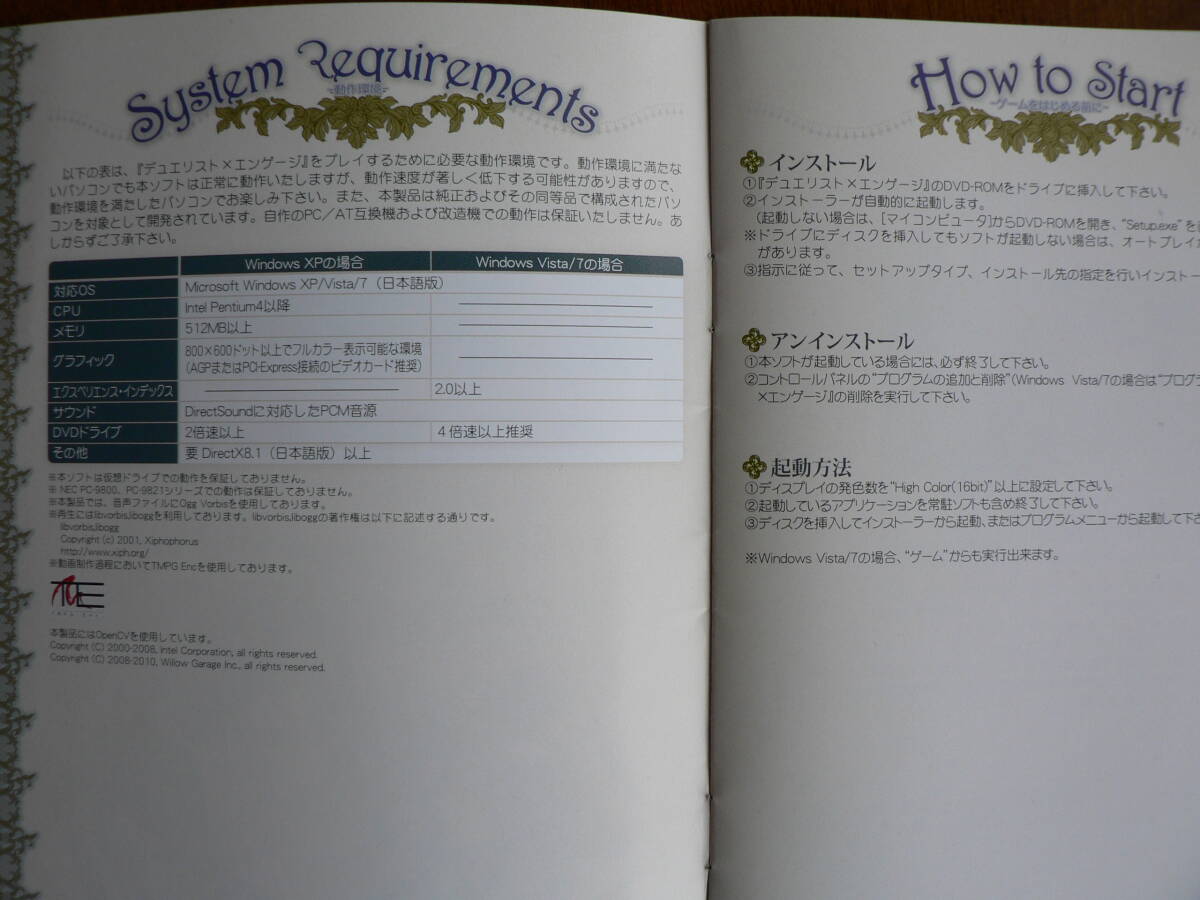 System Requirements
-動作環境-
以下の表は、『デュエリスト×エンゲージ』をプレイするために必要な動作環境です。動作環境に満たな
いパソコンでも本ソフトは正常に動作いたしますが、動作速度が著しく低下する可能性がありますので、
動作環境を満たしたパソコンでお楽しみ下さい。また、本製品は純正およびその同等品で構成されたパソ
コンを対象として開発されています。自作のPC/AT互換機および改造機での動作は保証いたしません。あ
しからずご了承下さい。
Windows XPの場合 Windows Vista/7の場合
対応OS Microsoft Windows XP/Vista/7（日本語版）
CPU Intel Pentium4以降
メモリ 512MB以上
グラフィック 800×600ドット以上でフルカラー表示可能な環境
（AGPまたはPCI-Express接続のビデオカード推奨）
エクスペリエンス・インデックス 2.0以上
サウンド DirectSoundに対応したPCM音源
DVDドライブ 2倍速以上 4倍速以上推奨
その他 要 DirectX8.1（日本語版）以上
※本ソフトは仮想ドライブでの動作を保証しておりません。
※ NEC PC-9800、PC-9821シリーズでの動作は保証しておりません。
※本製品では、音声ファイルにOgg Vorbisを使用しております。
※再生にはlibvorbis,liboggを利用しております。libvorbis,liboggの著作権は以下に記述する通りです。
libvorbis,libogg
Copyright (c) 2001, Xiphophorus
http://www.xiph.org/
※動画制作過程においてTMPG Encを使用しております。
本製品にはOpenCVを使用しています。
Copyright (C) 2000-2008, Intel Corporation, all rights reserved.
Copyright (C) 2008-2010, Willow Garage Inc., all rights reserved.
How to Start
-ゲームをはじめる前に-
インストール
①『デュエリスト×エンゲージ』のDVD-ROMをドライブに挿入して下さい。
②インストーラーが自動的に起動します。
（起動しない場合は、[マイコンピュータ]からDVD-ROMを開き、“Setup.exe”を
※ドライブにディスクを挿入してもソフトが起動しない場合は、オートプレイ
があります。
③指示に従って、セットアップタイプ、インストール先の指定を行いインストー
アンインストール
①本ソフトが起動している場合には、必ず終了して下さい。
②コントロールパネルの“プログラムの追加と削除”（Windows Vista/7の場合は“プログ
×エンゲージ』の削除を実行して下さい。
起動方法
①ディスプレイの発色数を“High Color(16bit)”以上に設定して下さい。
②起動しているアプリケーションを常駐ソフトも含め終了して下さい。
③ディスクを挿入してインストーラーから起動、またはプログラムメニューから起動して下さ
※Windows Vista/7の場合、“ゲーム”からも実行出来ます。